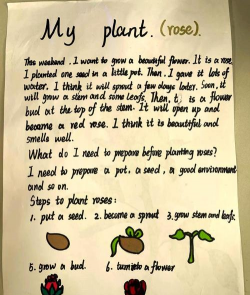 My plant. (rose).
This weekend, I want to grow a beautiful flower. It is a rose.
I planted one seed in a little pot. Then, I gave it lots of
water. I think it will sprout a few days later. Soon, it
will grow a stem and some leafs. Then, it is a flower
bud at the top of the stem. It will open up and
become a red rose. I think it is beautiful and
smells well.
What do I need to prepare before planting roses?
I need to prepare a pot, a seed, a good environment
and so on.
Steps to plant roses:
1. put a seed. 2. become a sprout 3. grow stem and leafs.
5. grow a bud. 6. turn into a flower